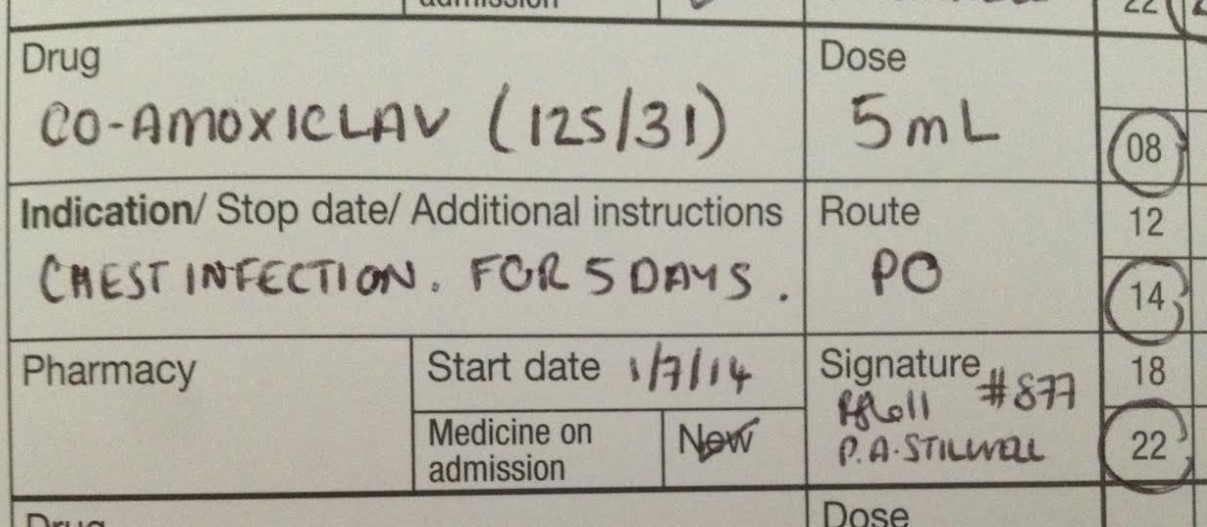 admission
22
Drug
CO-AMOXICLAV (125/31)
Dose
5mL
08
Indication/ Stop date/ Additional instructions
CHEST INFECTION. FOR 5 DAYS.
Route
PO
12
14
Pharmacy
Start date 1/7/14
Medicine on
admission
New
Signature
#877
P.A.STILLWELL
18
22
Drug
Dose